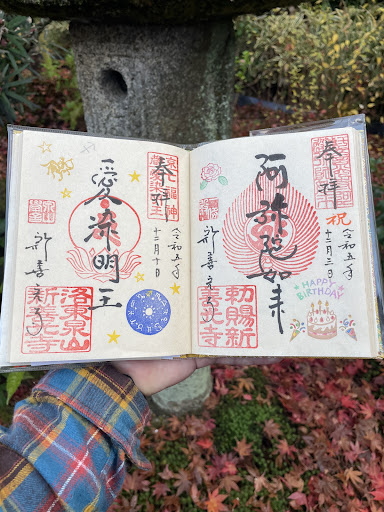 奉拝
祝
令和五年
十二月三日
阿弥陀如来
新善光寺
勅賜新
善光寺
HAPPY
BIRTHDAY
奉拝
令和五年
十二月十日
愛染明王
新善光寺
洛東泉山
新善光寺